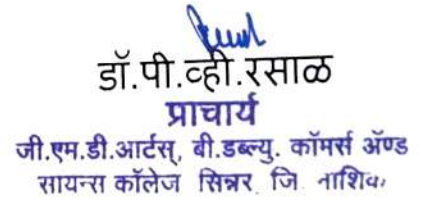 डॉ.पी.व्ही.रसाळ
प्राचार्य
जी.एम.डी.आर्टस्, बी.डब्ल्यु. कॉमर्स अ‍ॅण्ड
सायन्स कॉलेज सिन्नर जि नाशिक